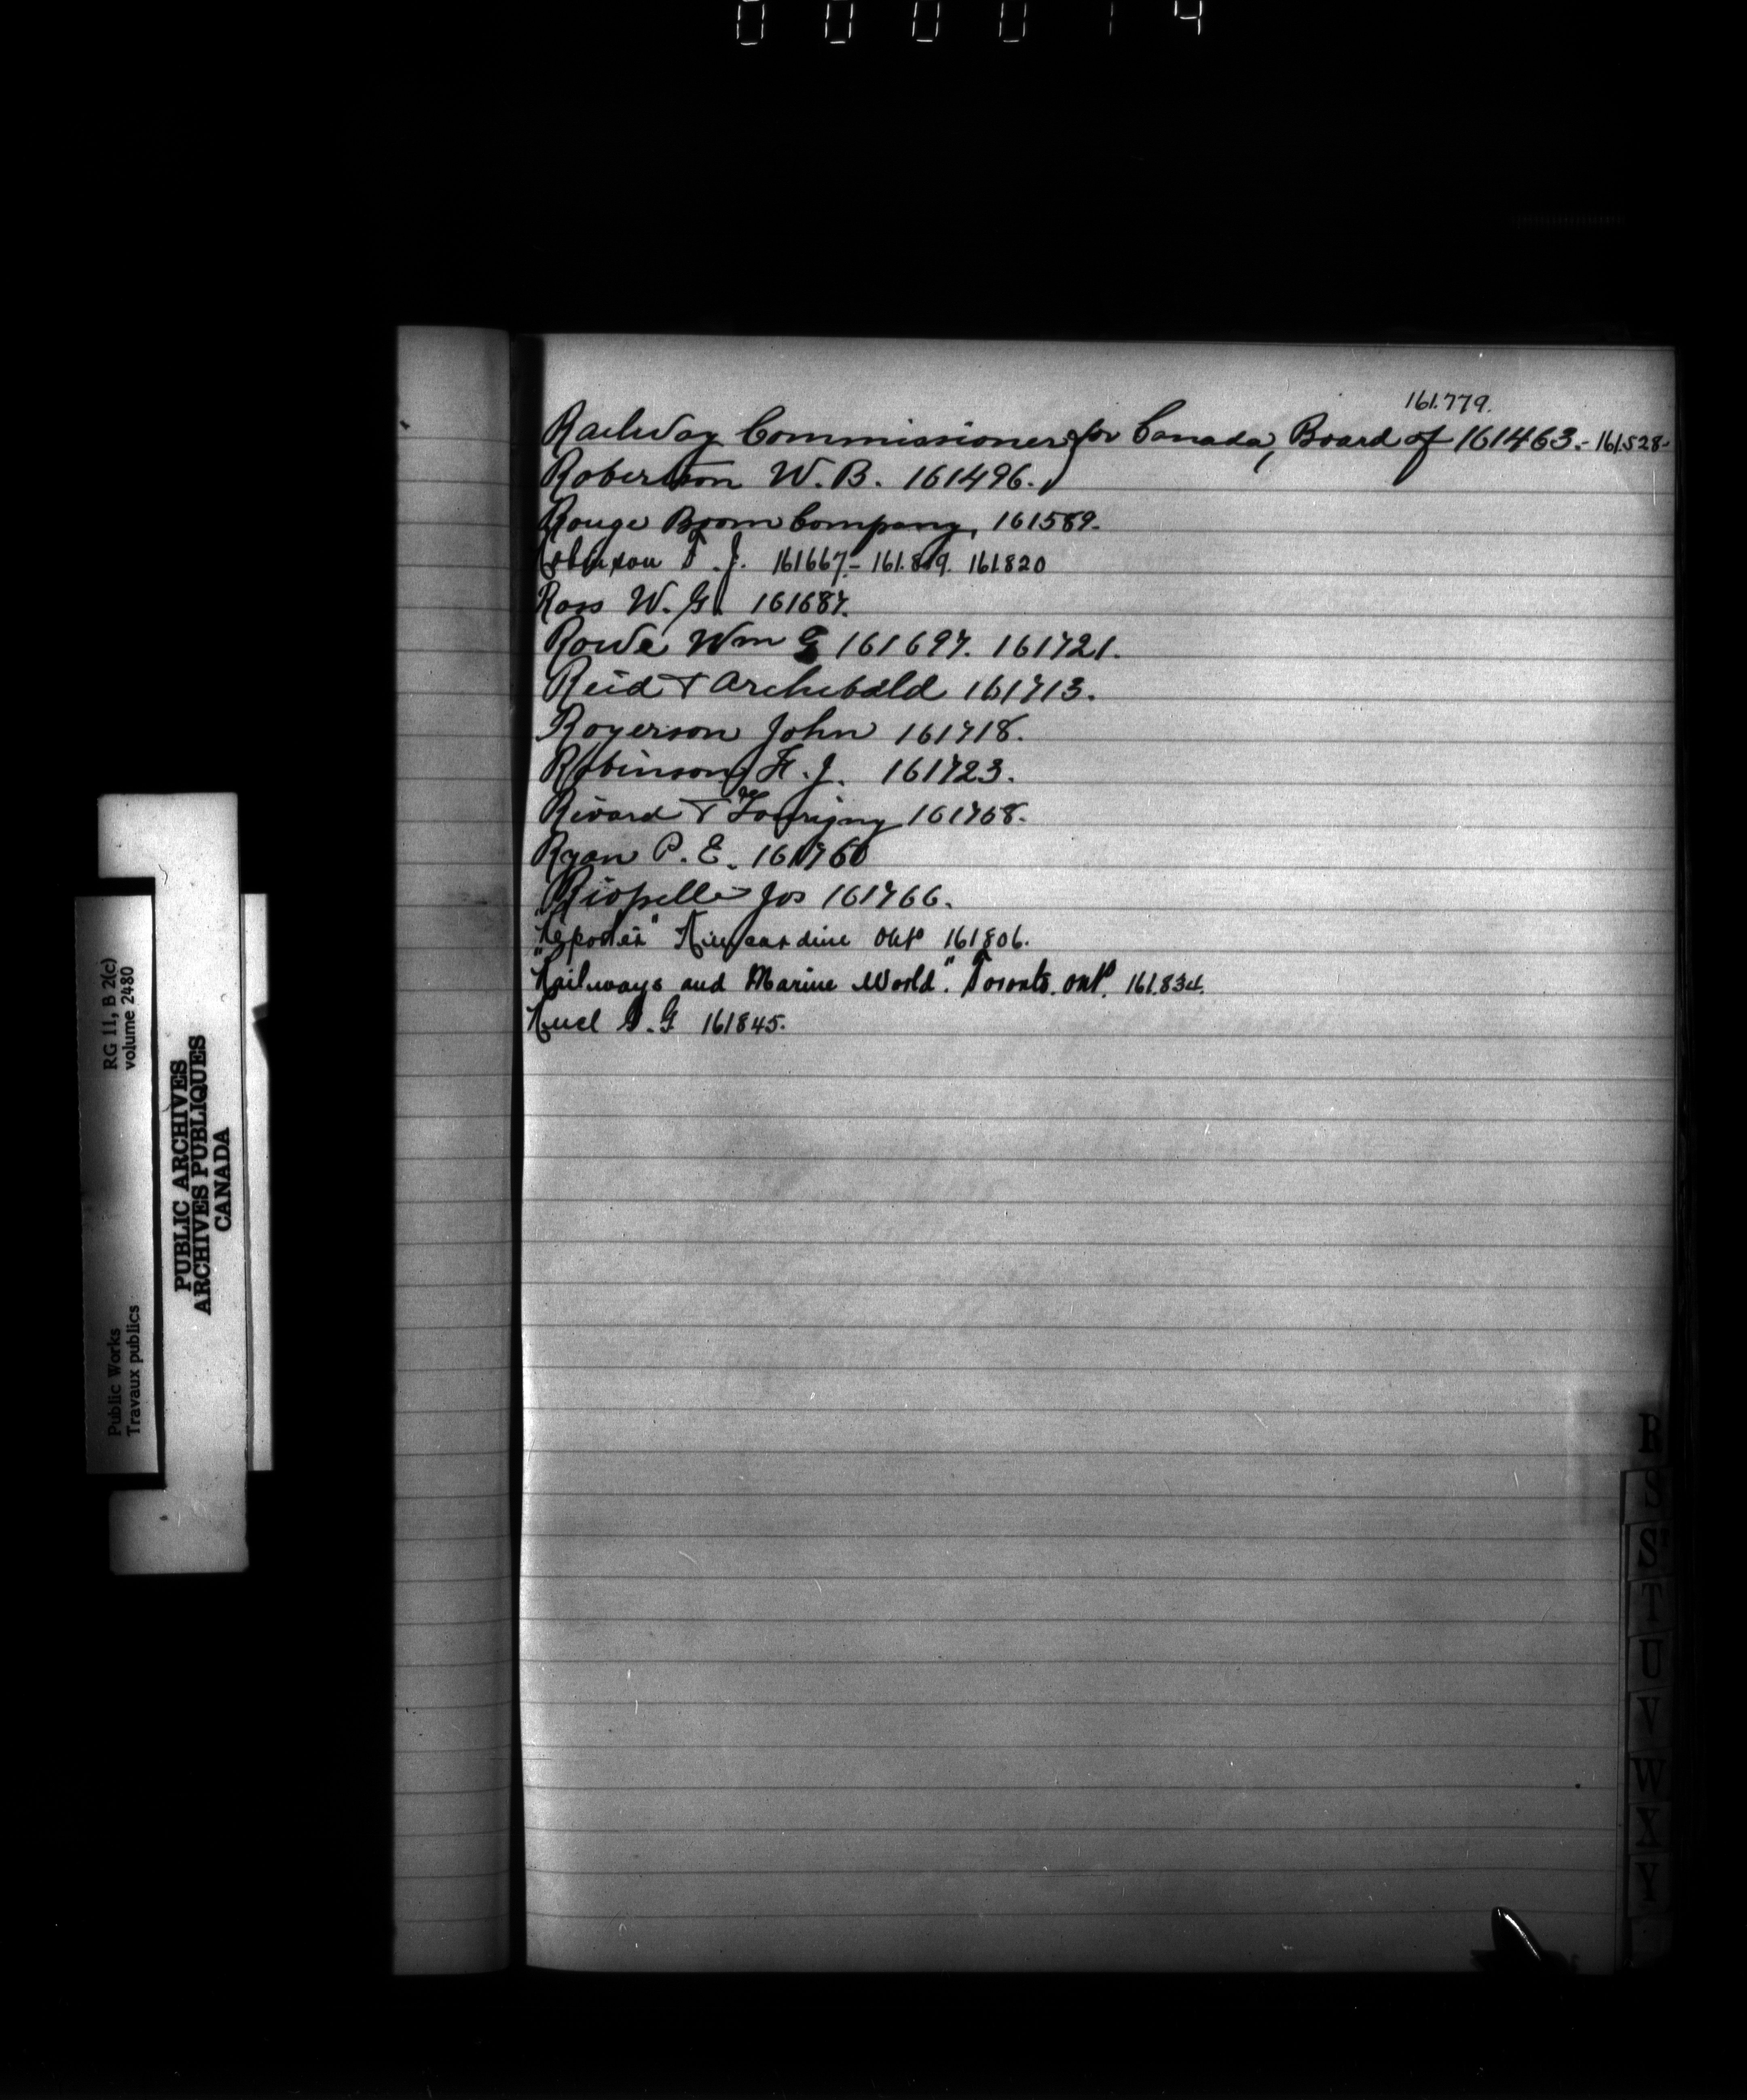 000014
161.779.
Railway Commissioners for Canada, Board of 161463.- 161.528-
Robertson W. B. 161496.
Rouge Boom Company, 161589-
Robinson T. J. 161667- 161.819. 161.820
Ross W. G. 161687.
Rowe Wm G 161697. 161721.
Reid & Archibald 161713.
Rogerson John 161718.
Robinson F. J. 161723.
Rivard & Tourigny 161768.
Ryan P. E. 161760
Riopelle Jos 161766.
"Reporter" Kincardine Ont 161806.
"Railways and Marine World". Toronto. Ont. 161.834.
G. G 161845.
R
S
S
T
U
V
W
X
Y
RG 11, B 2(c)
volume 2480
Public Works
Travaux publics
PUBLIC ARCHIVES
ARCHIVES PUBLIQUES
CANADA